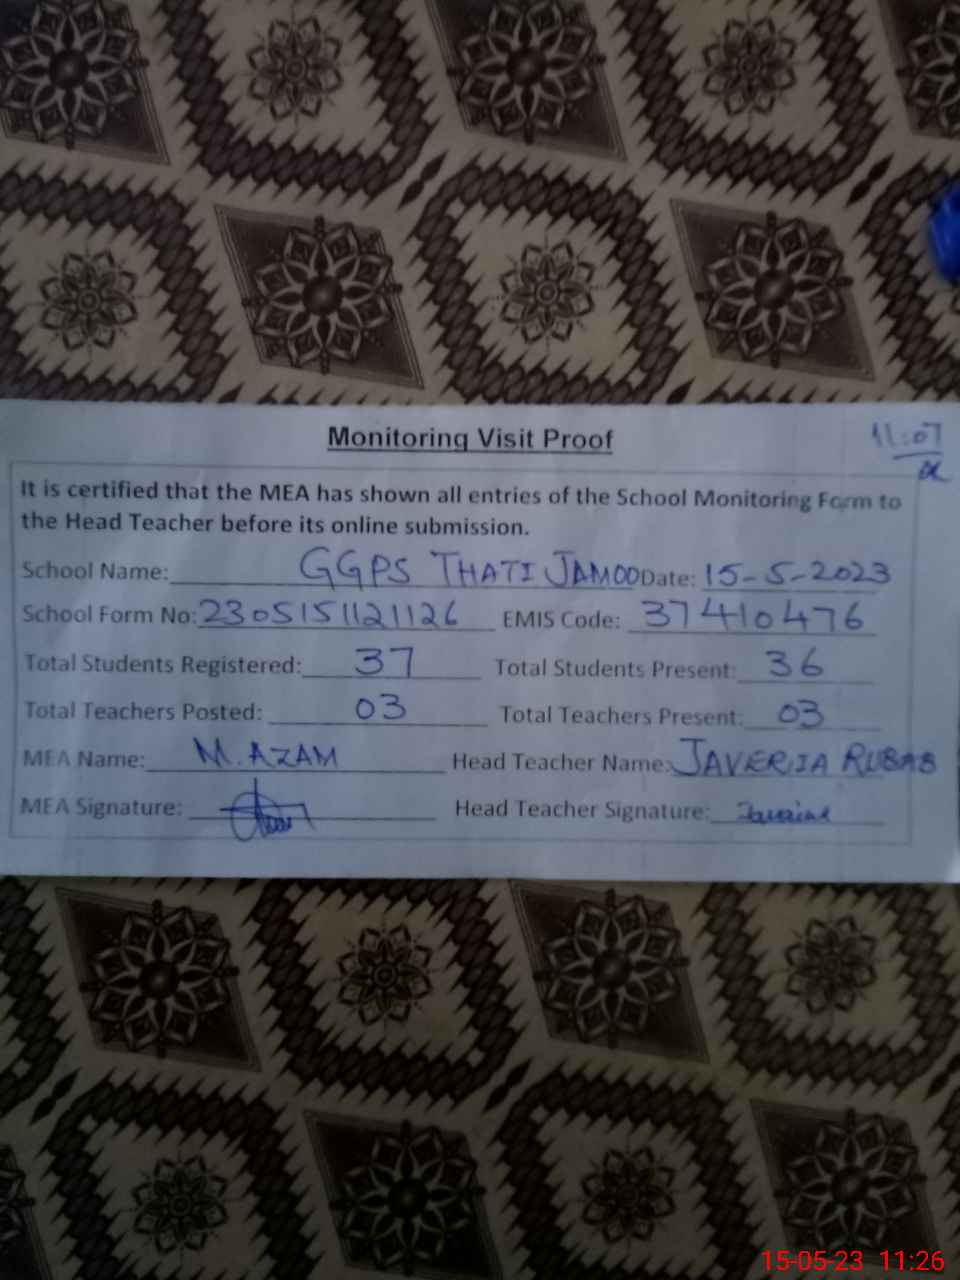 Monitoring Visit Proof
11:07
It is certified that the MEA has shown all entries of the School Monitoring Form to
the Head Teacher before its online submission.
School Name: GGPS THATI JAMOO Date: 15-5-2023
School Form No: 2305151121126 EMIS Code: 37410476
Total Students Registered: 37 Total Students Present: 36
Total Teachers Posted: 03 Total Teachers Present: 03
MEA Name: M. AZAM Head Teacher Name: JAVERIA RUBAB
MEA Signature: Head Teacher Signature: Javeria
15-05-23 11:26